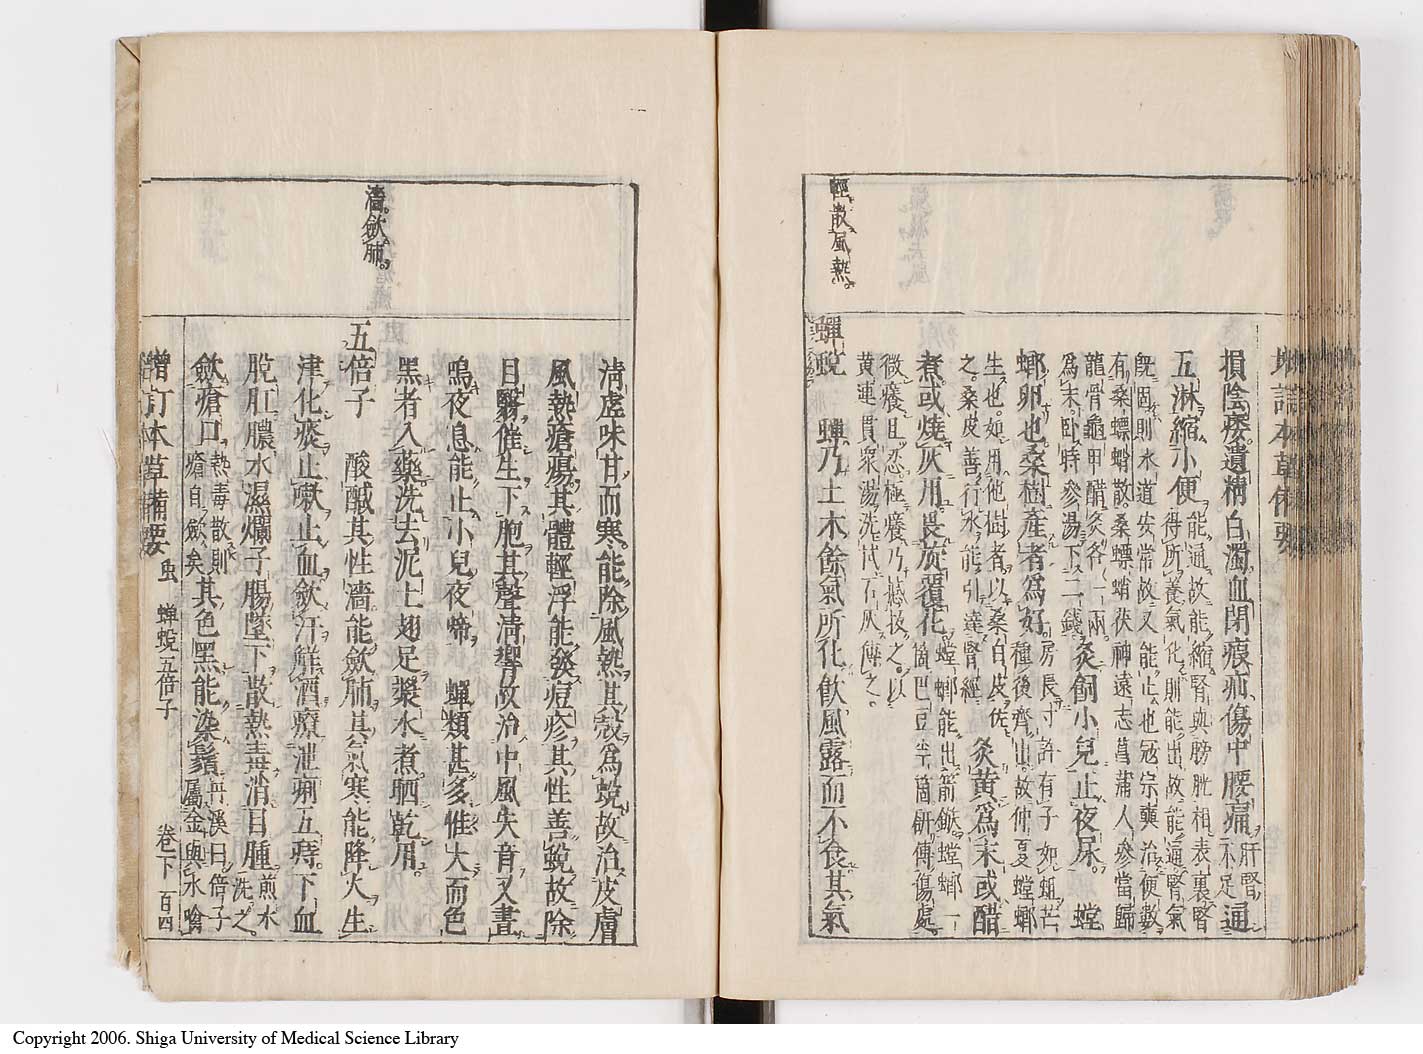 輕散風熱
損陰痿遺精白濁血閉瘕疝傷中腰痛肝腎不足通
五淋縮小便能通故能縮腎與膀胱相表裏腎得所養氣化則能出故能通腎氣
既固則水道安常故又能止也寇宗奭治便數有桑螵蛸散桑螵蛸茯神遠志菖蒲人參當歸
龍骨龜甲醋炙各一兩為末臥時參湯下二錢炙飼小兒止夜尿螳
螂卵也桑樹產者為好房長寸許有子如蛆芒種後齊出故仲夏螳螂
生也如用他樹者以桑白皮佐之桑皮善行水能引達腎經炙黃為末或醋
煮或燒灰用畏旋覆花螳螂能出箭鏃螳螂一箇巴豆半箇研傅傷處
微癢且忍極癢乃撼拔之以黃連貫衆湯洗拭石灰傅之
蟬蛻 蟬乃土木餘氣所化飲風露而不食其氣
濇斂肺
清虛味甘而寒能除風熱其殼為蛻故治皮膚
風熱瘡瘍其體輕浮能發痘疹其性善蛻故除
目翳催生下胞其聲清響故治中風失音又晝
鳴夜息能止小兒夜啼 蟬類甚多惟大而色
黑者入藥洗去泥土翅足漿水煮晒乾用
五倍子 酸鹹其性濇能斂肺其氣寒能降火生
津化痰止嗽止血斂汗解酒療泄痢五痔下血
脫肛膿水濕爛子腸墜下散熱毒消目腫煎水洗之
斂瘡口熱毒散則瘡自斂矣其色黑能染鬚丹溪曰倍子屬金與水噙
增訂本草備要 虫 蟬蛻 五倍子 卷下 百四